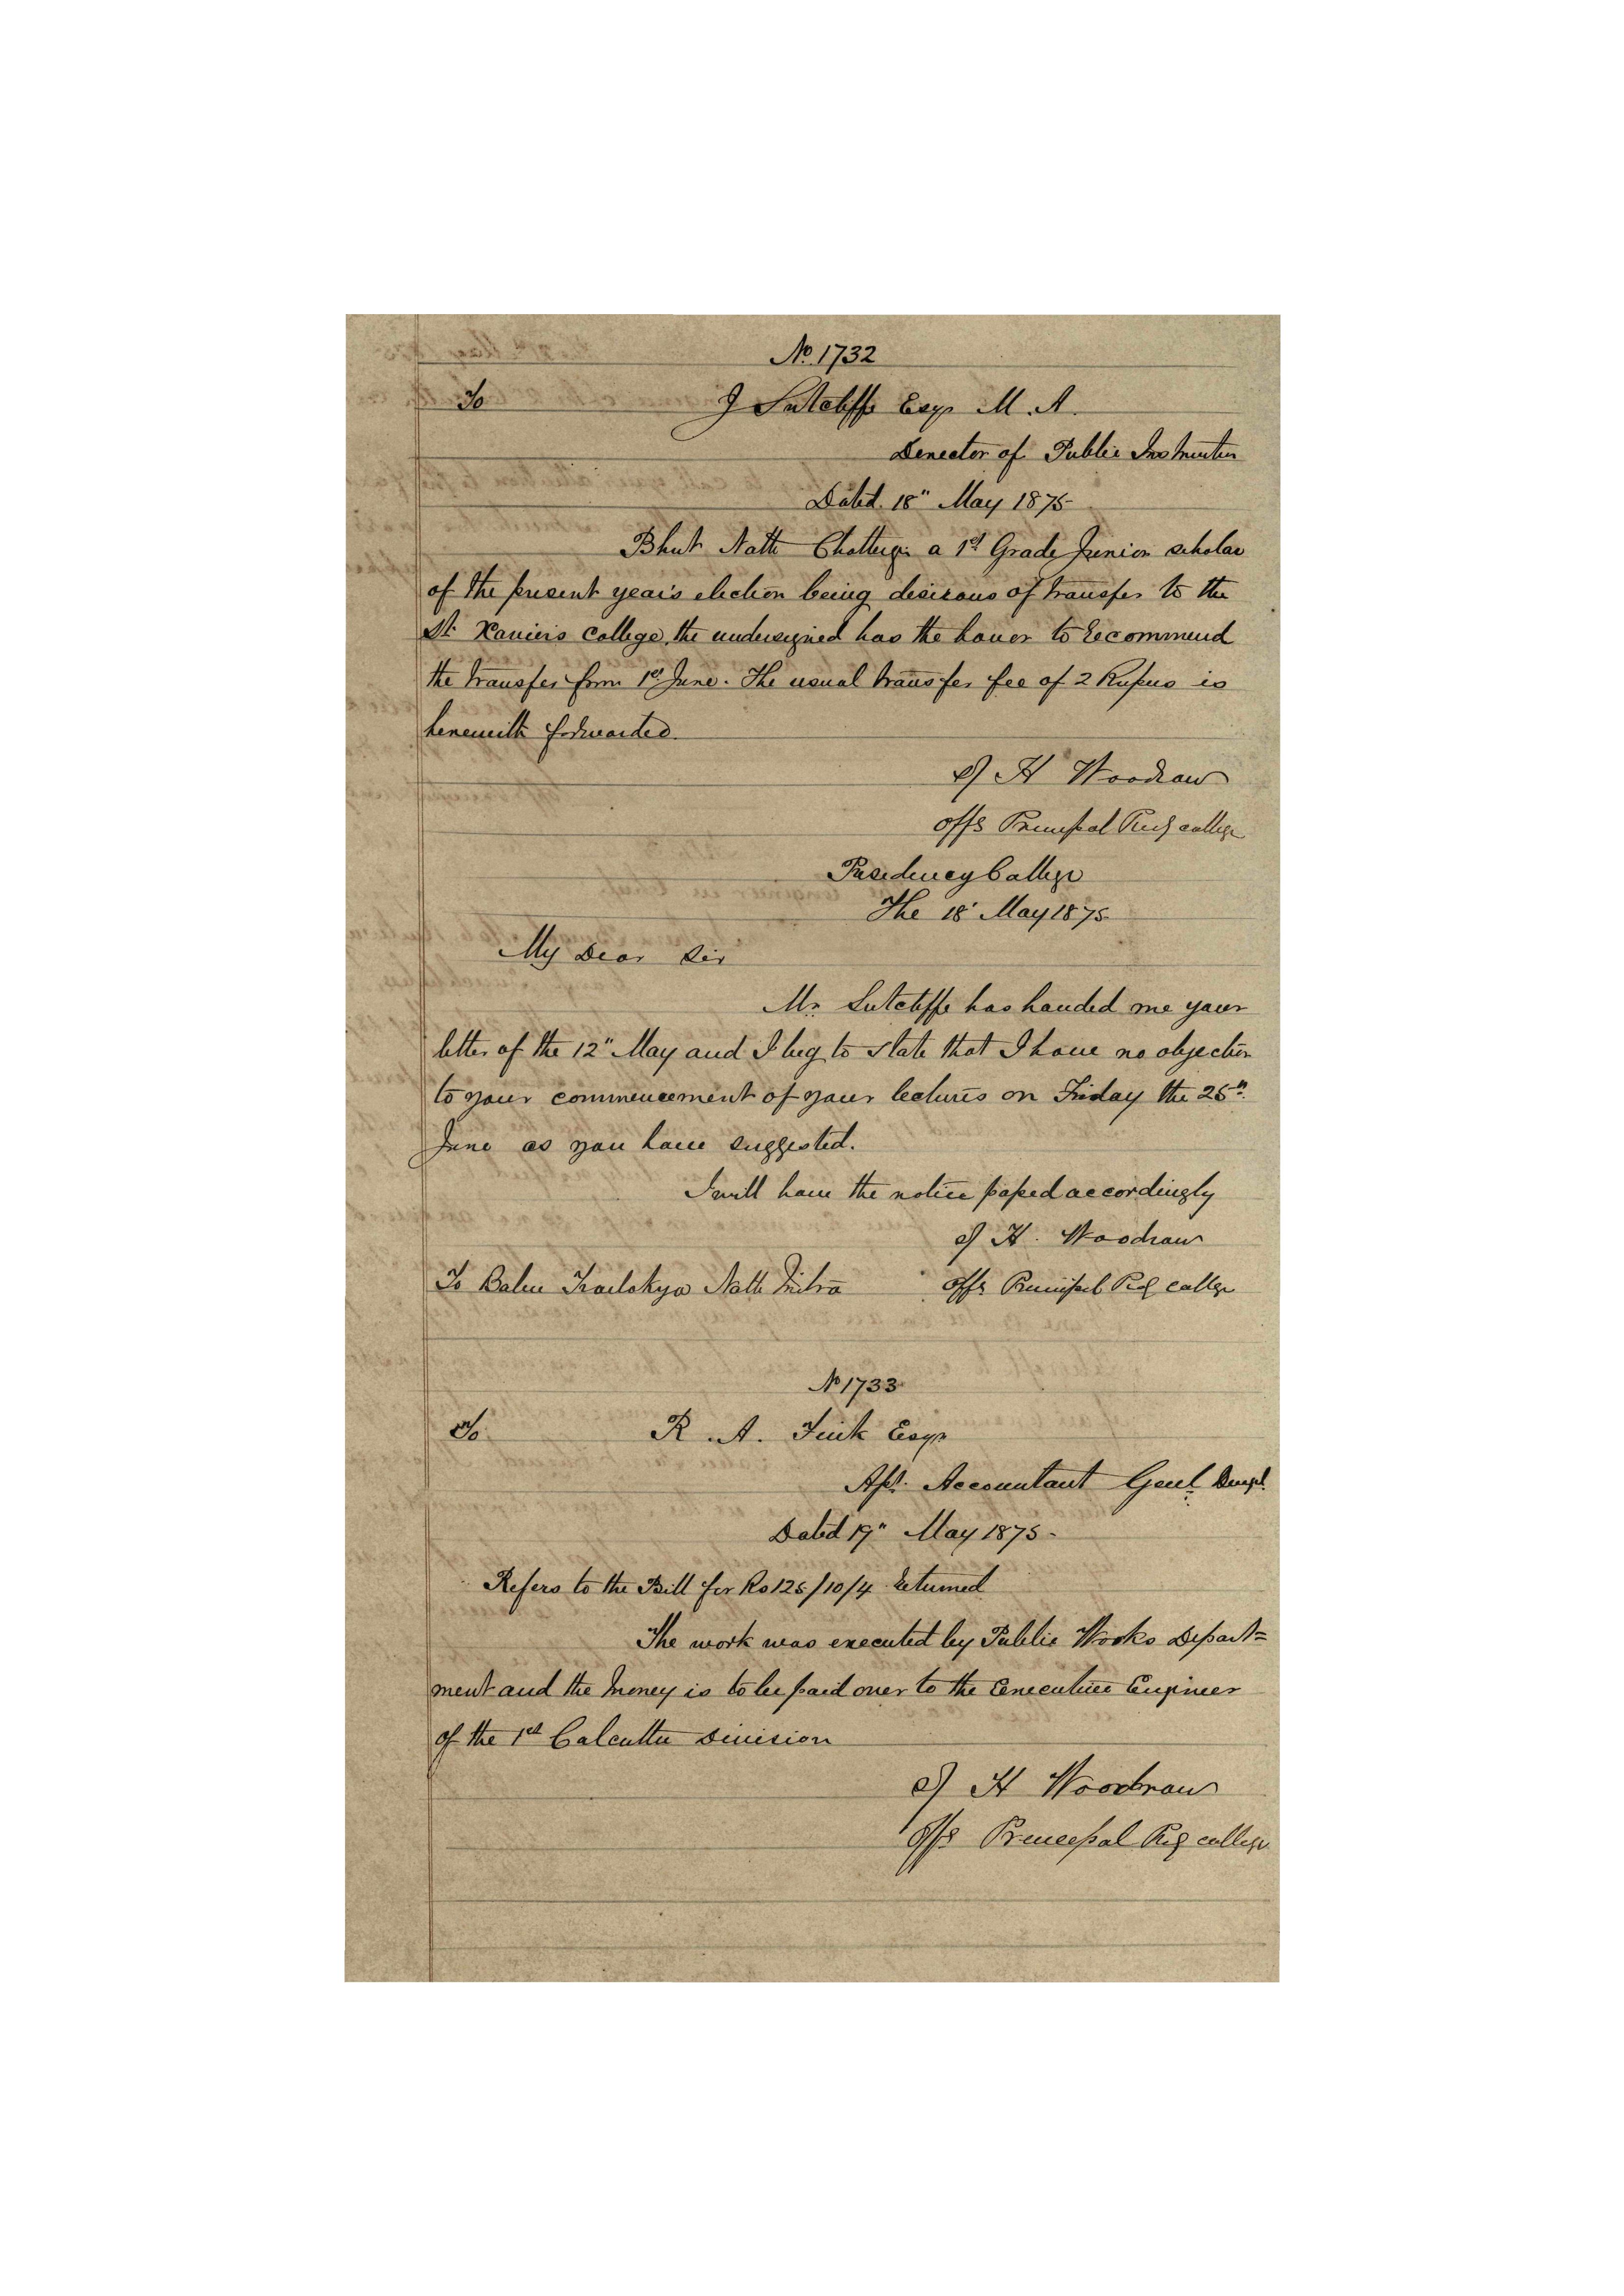 No. 1732
To J Sutcliffe Esqr M. A.
Director of Public Instruction
Dated. 18" May 1875-
Bhut Nath Chatterji a 1st Grade Junior scholar
of the present year's election being desirous of transfer to the
St. Xavier's College, the undersigned has the honor to recommend
the transfer from 1st June. The usual transfer fee of 2 Rupees is
herewith forwarded.
H Woodrow
Offg Principal Presy college
Presidency College
The 18" May 1875
My Dear Sir
Mr. Sutcliffe has handed me your
letter of the 12" May and I beg to state that I have no objection
to your commencement of your lectures on Friday the 25th
June as you have suggested.
I will have the notice passed accordingly
H. Woodrow
To Babu Trailokya Nath Mitra Offg Principal Presy college
No 1733
To R. A. Esqr
Asst. Accountant Genl. Bengl.
Dated 19" May 1875-
Refers to the Bill for Rs 125/10/4 returned
The work was executed by Public Works Depart=
ment and the money is to be paid over to the Executive Engineer
of the 1st Calcutta Division
H Woodrow
Offg Principal Presy college